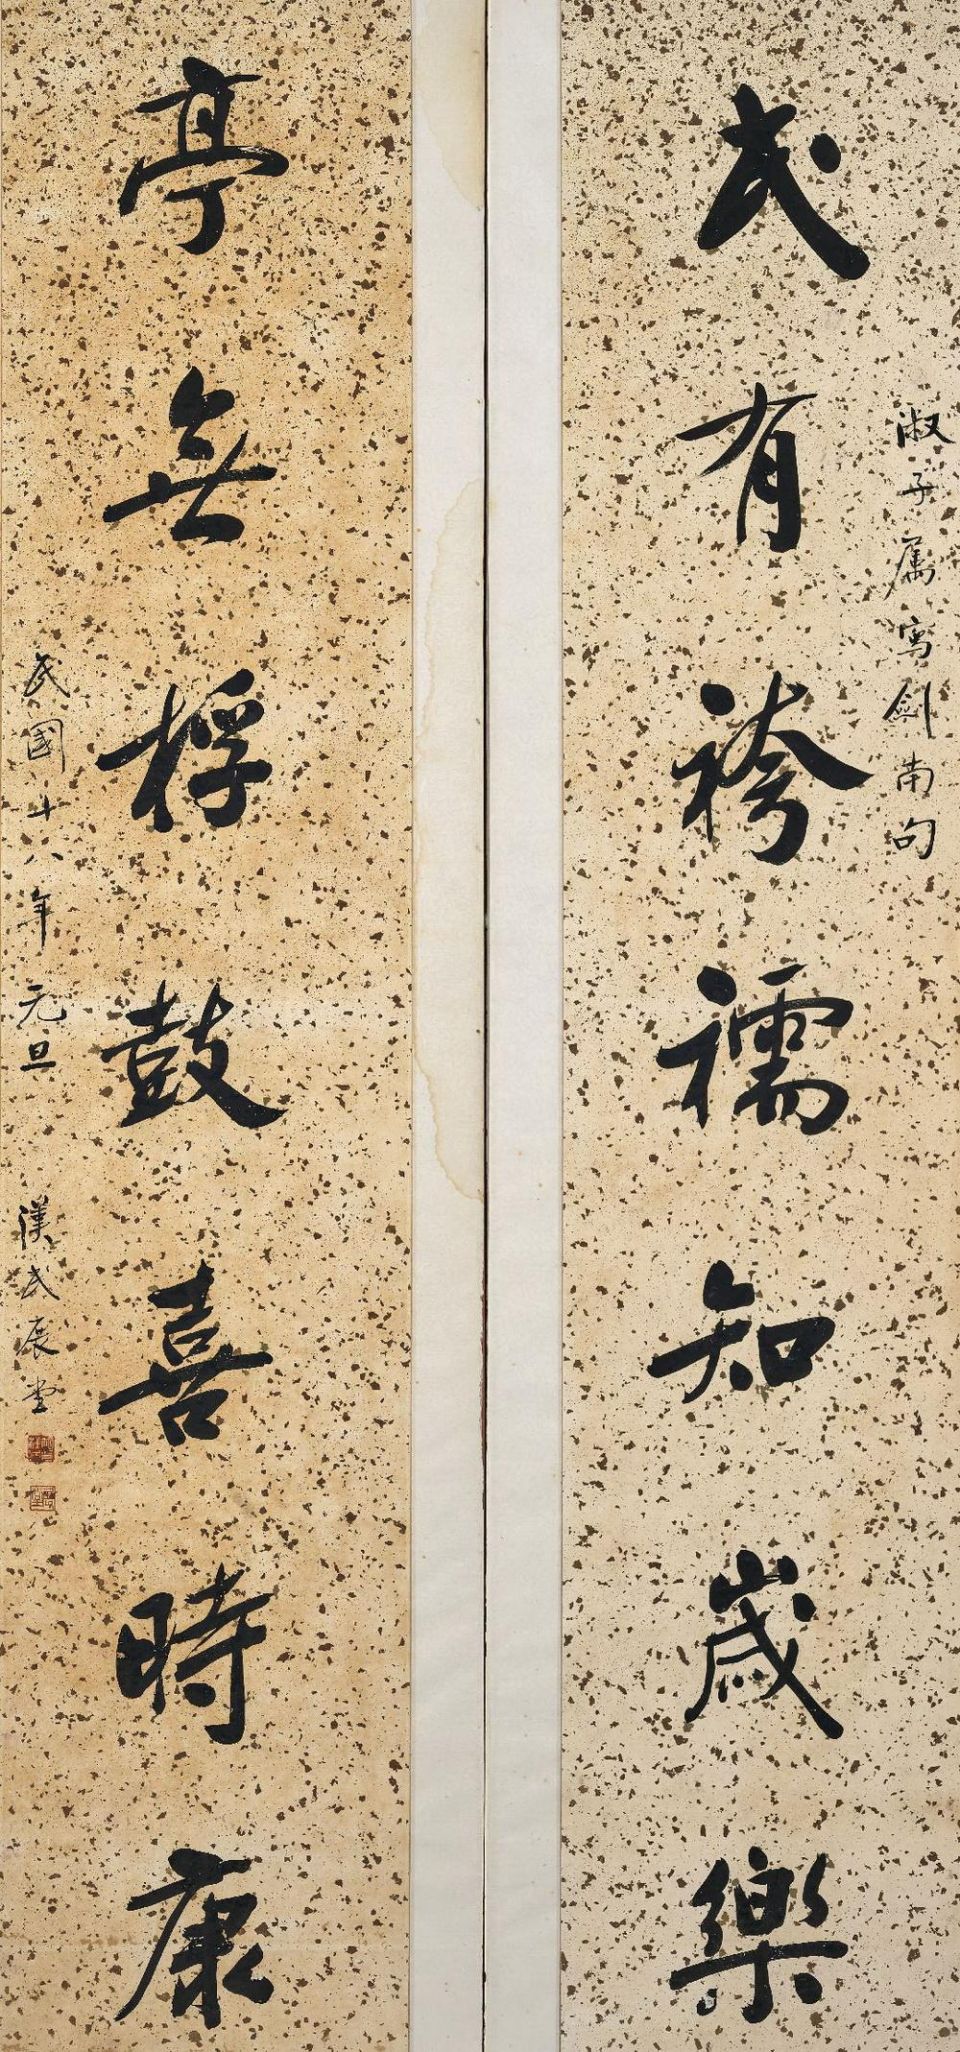 民有袴襦知歲樂
淑子属寫劍南句
亭無桴鼓喜時康
民國十八年元旦 漢民展堂